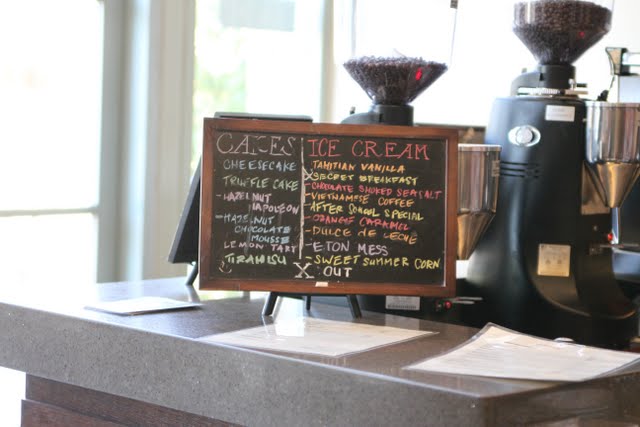 CAKES
CHEESECAKE
TRUFFLE CAKE
-HAZELNUT
NAPOLEON
-HAZELNUT
CHOCOLATE
MOUSSE
LEMON TART
TIRAMISU
ICE CREAM
TAHITIAN VANILLA
X SECRET BREAKFAST
-CHOCOLATE SMOKED SEA SALT
-VIETNAMESE COFFEE
-AFTER SCHOOL SPECIAL
-ORANGE CARAMEL
-DULCE DE LECHE
-ETON MESS
-SWEET SUMMER CORN
X: OUT